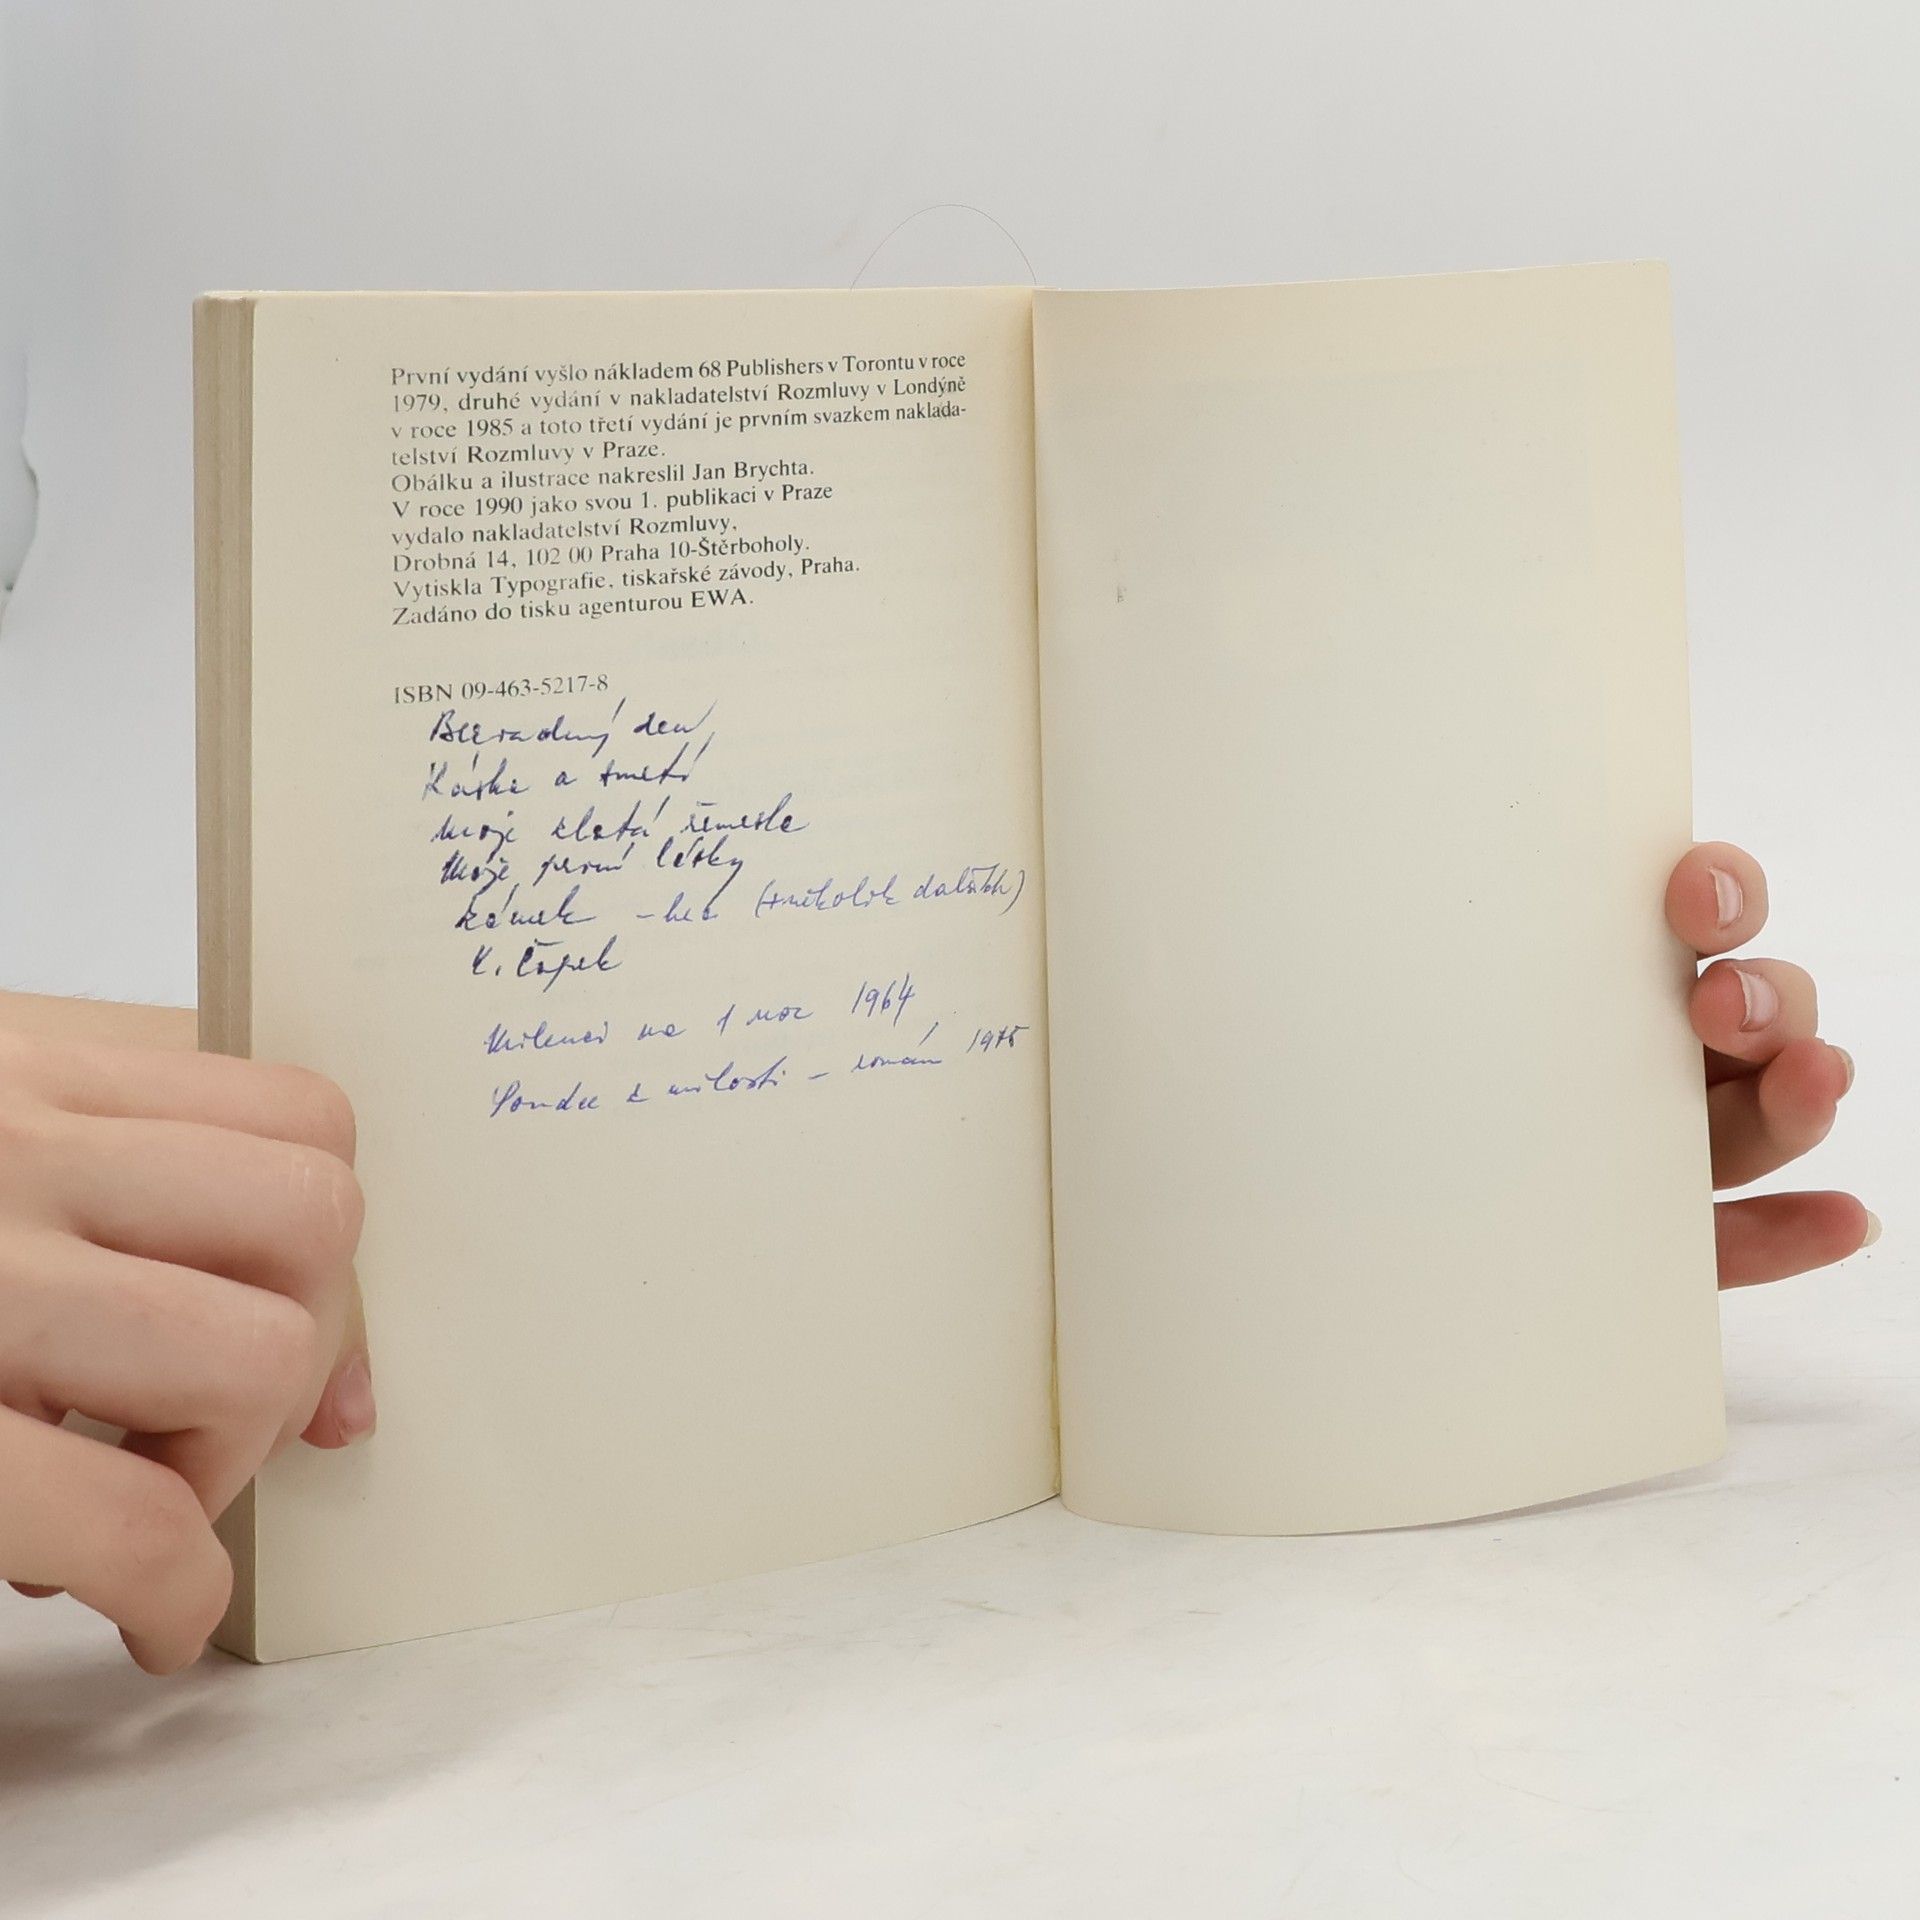 První vydání vyšlo nákladem 68 Publishers v Torontu v roce
1979, druhé vydání v nakladatelství Rozmluvy v Londýně
v roce 1985 a toto třetí vydání je prvním svazkem naklada-
telství Rozmluvy v Praze.
Obálku a ilustrace nakreslil Jan Brychta.
V roce 1990 jako svou 1. publikaci v Praze
vydalo nakladatelství Rozmluvy,
Drobná 14, 102 00 Praha 10-Štěrboholy.
Vytiskla Typografie, tiskařské závody, Praha.
Zadáno do tisku agenturou EWA.
ISBN 09-463-5217-8
den
Láska a smetí
Moje zlatá řemesla
Moje první lásky
Zámek - hra (+několik dalších)
K. Čapek
Milenci na 1 noc 1964
Soudce z milosti - román